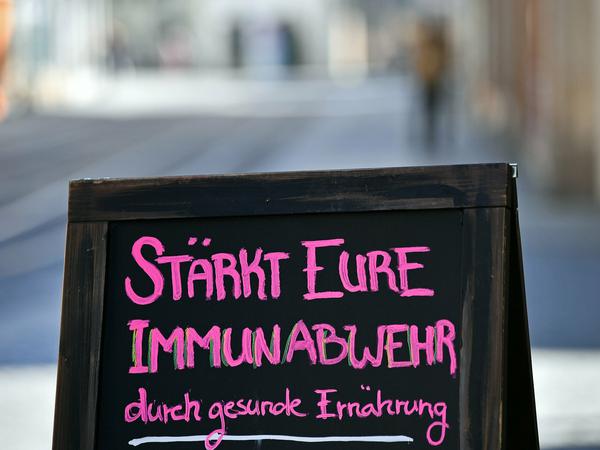 STÄRKT EURE
IMMUNABWEHR
durch gesunde Ernährung